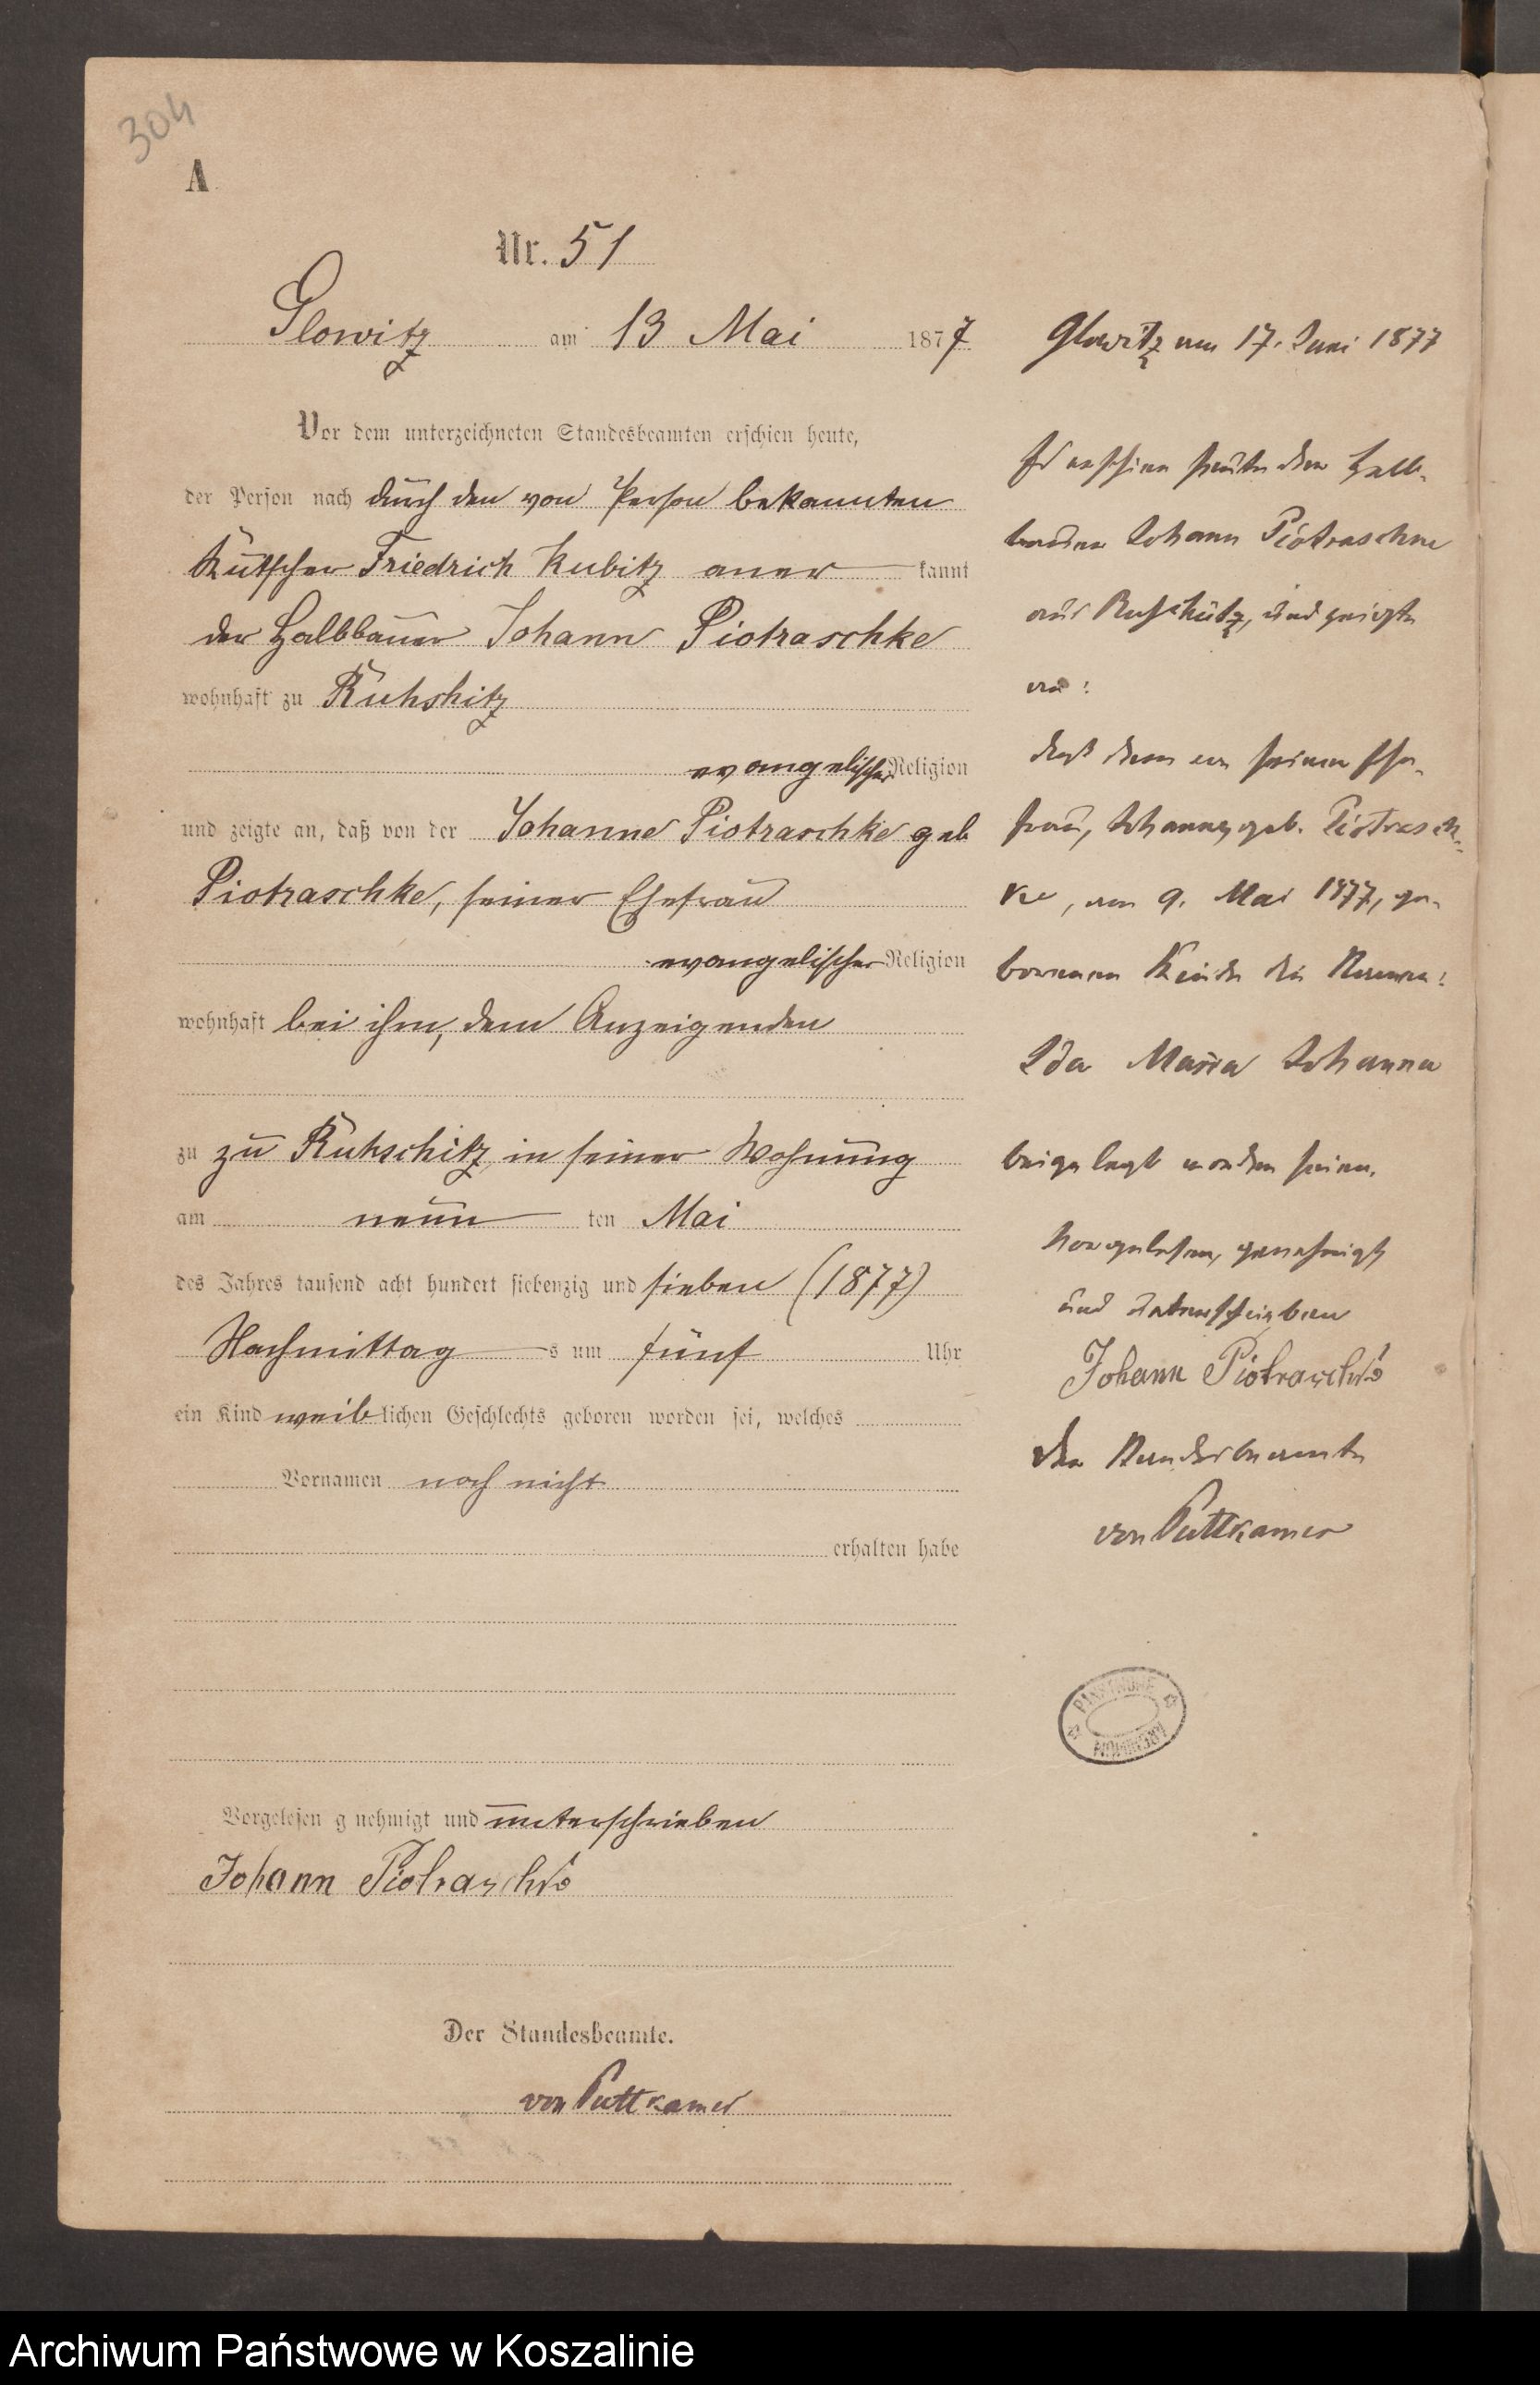 304
A
Nr. 51
Glowitz am 13 Mai 1877
Vor dem unterzeichneten Standesbeamten erschien heute,
der Person nach durch den von Person bekannten
Kutscher Friedrich Kubitz aner kannt
der Halbbauer Johann Piotraschke
wohnhaft zu Ruhshitz
evangelischer Religion
und zeigte an, daß von der Johanne Piotraschke geb
Piotraschke, seiner Ehefrau
evangelischer Religion
wohnhaft bei ihm, dem Anzeigenden
zu zu Ruhschitz, in seiner Wohnung
am neun ten Mai
des Jahres tausend acht hundert siebenzig und sieben (1877)
Nachmittag s um fünf Uhr
ein Kind weiblichen Geschlechts geboren worden sei, welches
Vornamen noch nicht
erhalten habe
Vorgelesen g nehmigt und unterschrieben
Johann Piotraschke
Der Standesbeamte.
von Puttkamer
Glowitz am 17. Juni 1877
Es erschien heute der Halb-
bauer Johann Piotraschke
aus Ruhschütz, und zeigte
an:
daß dem von seiner Ehe-
frau, Johanne, geb. Piotrasch-
ke, am 9. Mai 1877, ge-
borenen Kinde die Namen:
Ida Maria Johanna
beigelegt worden seien.
Vorgelesen, genehmigt
und unterschrieben
Johann Piotraschke
Der Standesbeamte
von Puttkamer
PAŃSTWOWE
ARCHIWUM
Archiwum Państwowe w Koszalinie